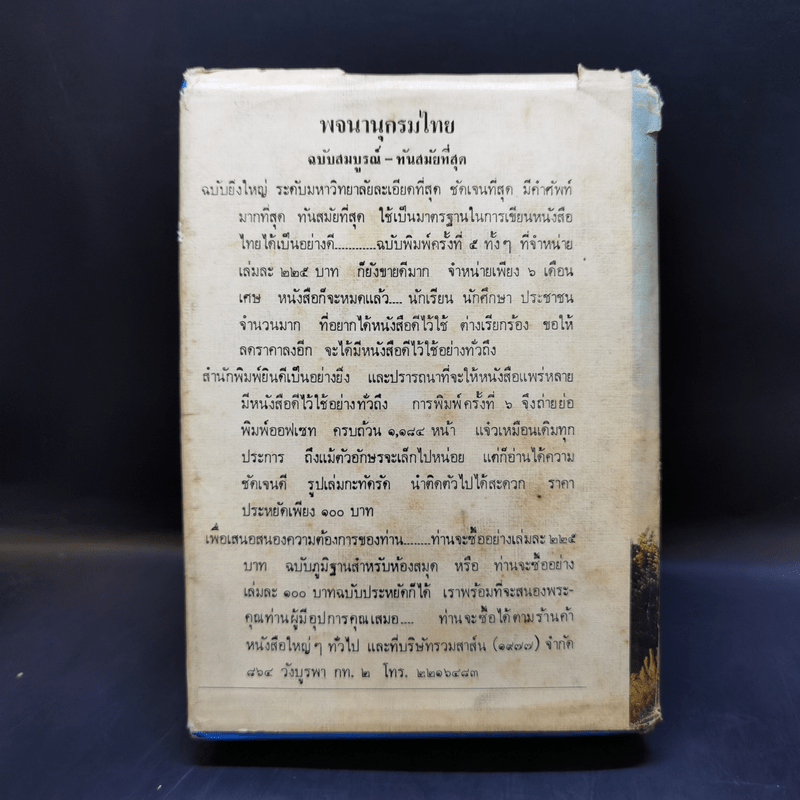 พจนานุกรมไทย
ฉบับสมบูรณ์ – ทันสมัยที่สุด
ฉบับยิ่งใหญ่ ระดับมหาวิทยาลัยละเอียดที่สุด ชัดเจนที่สุด มีคำศัพท์
มากที่สุด ทันสมัยที่สุด ใช้เป็นมาตรฐานในการเขียนหนังสือ
ไทยได้เป็นอย่างดี............ฉบับพิมพ์ครั้งที่ ๕ ทั้งๆ ที่จำหน่าย
เล่มละ ๒๒๕ บาท ก็ยังขายดีมาก จำหน่ายเพียง ๖ เดือน
เศษ หนังสือก็จะหมดแล้ว.... นักเรียน นักศึกษา ประชาชน
จำนวนมาก ที่อยากได้หนังสือดีไว้ใช้ ต่างเรียกร้อง ขอให้
ลดราคาลงอีก จะได้มีหนังสือดีไว้ใช้อย่างทั่วถึง
สำนักพิมพ์ยินดีเป็นอย่างยิ่ง และปรารถนาที่จะให้หนังสือแพร่หลาย
มีหนังสือดีไว้ใช้อย่างทั่วถึง การพิมพ์ครั้งที่ ๖ จึงถ่ายย่อ
พิมพ์ออฟเซท ครบถ้วน ๑,๑๘๔ หน้า แจ๋วเหมือนเดิมทุก
ประการ ถึงแม้ตัวอักษรจะเล็กไปหน่อย แต่ก็อ่านได้ความ
ชัดเจนดี รูปเล่มกะทัดรัด นำติดตัวไปได้สะดวก ราคา
ประหยัดเพียง ๑๐๐ บาท
เพื่อเสนอสนองความต้องการของท่าน........ท่านจะซื้ออย่างเล่มละ ๒๒๕
บาท ฉบับภูมิฐานสำหรับห้องสมุด หรือ ท่านจะซื้ออย่าง
เล่มละ ๑๐๐ บาทฉบับประหยัดก็ได้ เราพร้อมที่จะสนองพระ-
คุณท่านผู้มีอุปการคุณเสมอ.... ท่านจะซื้อได้ตามร้านค้า
หนังสือใหญ่ๆ ทั่วไป และที่บริษัทรวมสาส์น (๑๙๗๗) จำกัด
๘๖๔ วังบูรพา กท. ๒ โทร. ๒๒๑๖๔๘๓